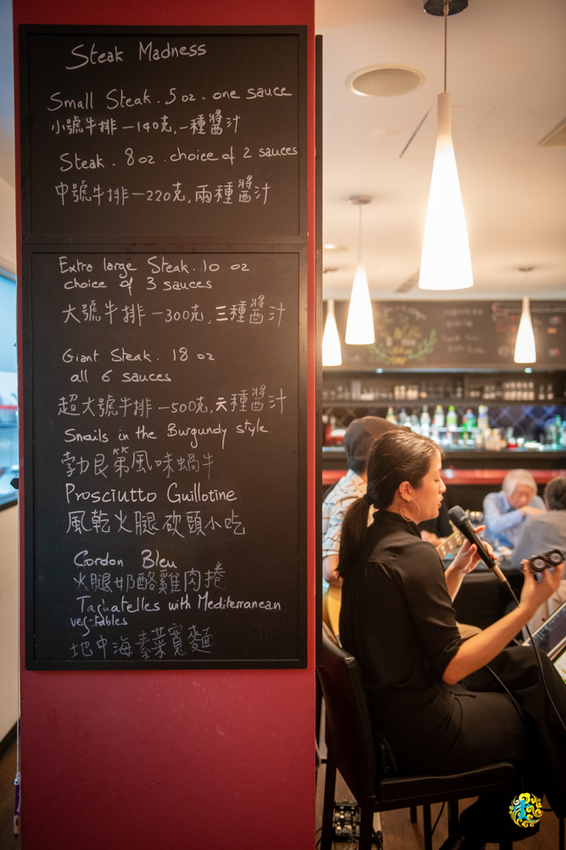 Steak Madness
Small Steak. 5 oz. one sauce
小號牛排—140克,一種醬汁
Steak. 8 oz. choice of 2 sauces
中號牛排—220克,兩種醬汁
Extra large Steak. 10 oz
choice of 3 sauces
大號牛排—300克,三種醬汁
Giant Steak. 18 oz
all 6 sauces
超大號牛排—500克,六種醬汁
Snails in the Burgundy style
風味蝸牛
Prosciutto Guillotine
風乾火腿砍頭小吃
Cordon Bleu
火腿奶酪雞肉捲
Tagliatelles with Mediterranean
vegetables
地中海素菜寬麵